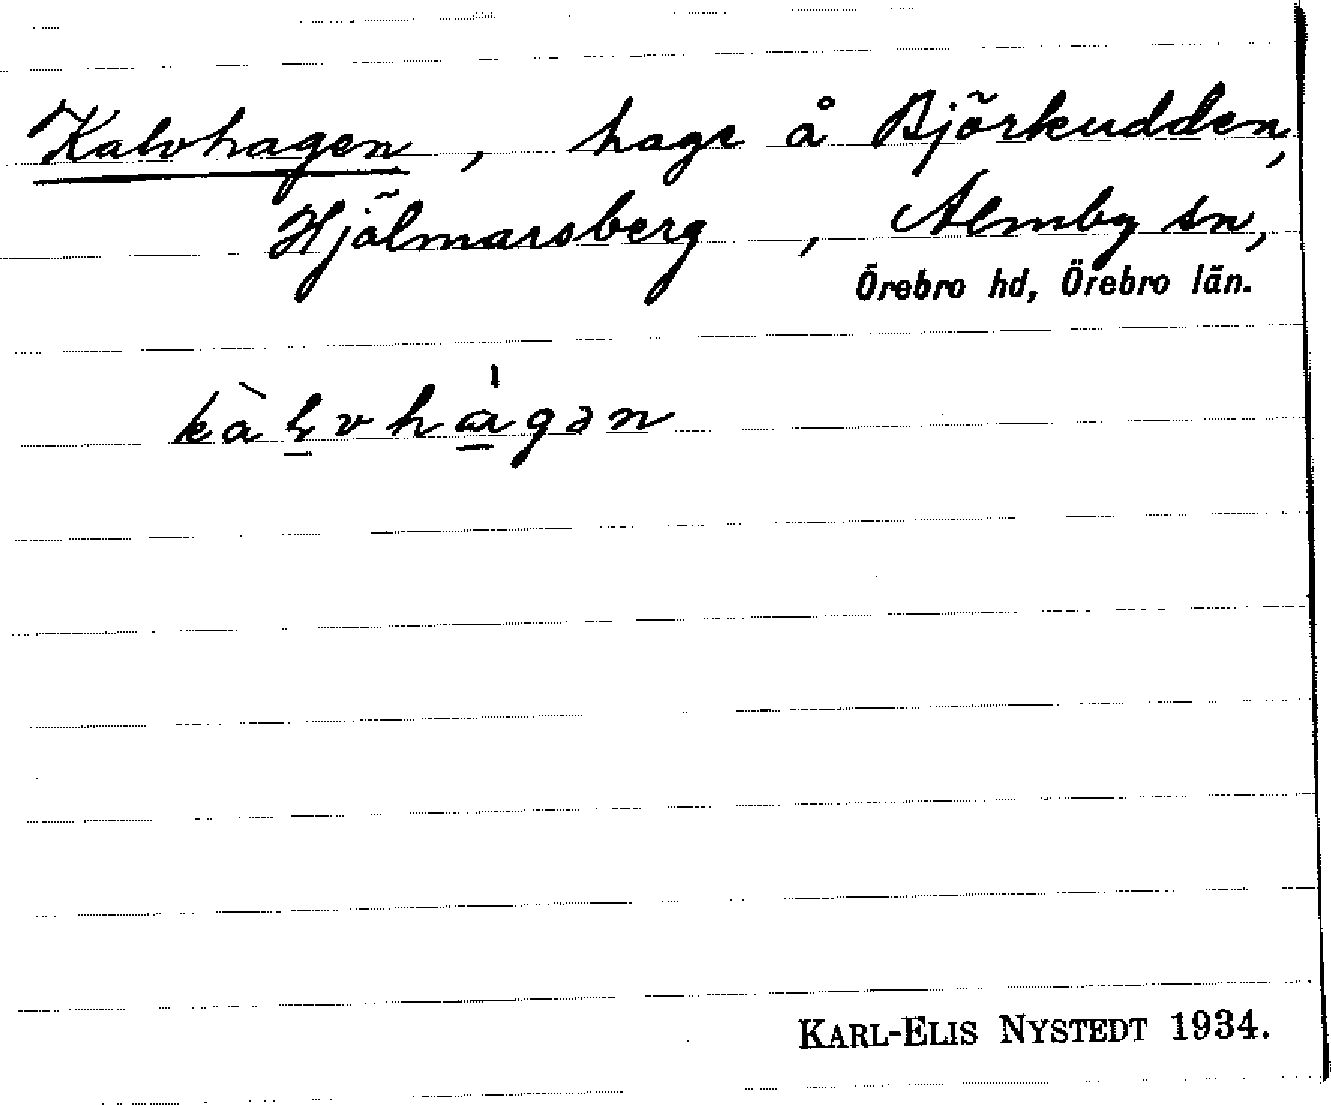 Kalvhagen, hage å Björkudden,
Hjälmarsberg, Almby sn,
Örebro hd, Örebro län.
kàɫ̠vhá̠gən
KARL-ELIS NYSTEDT 1934.